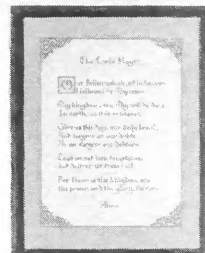 The Lords Prayer
Our Father which art in heaven
hallowed be Thy name
Thy kingdom come, Thy will be done
In earth, as it is in heaven
Give us this day, our daily bread,
And forgive us our debts
As we forgive our debtors
Lead us not into temptation,
but deliver us from evil
For thine is the kingdom, and
the power, and the glory, for ever.
Amen